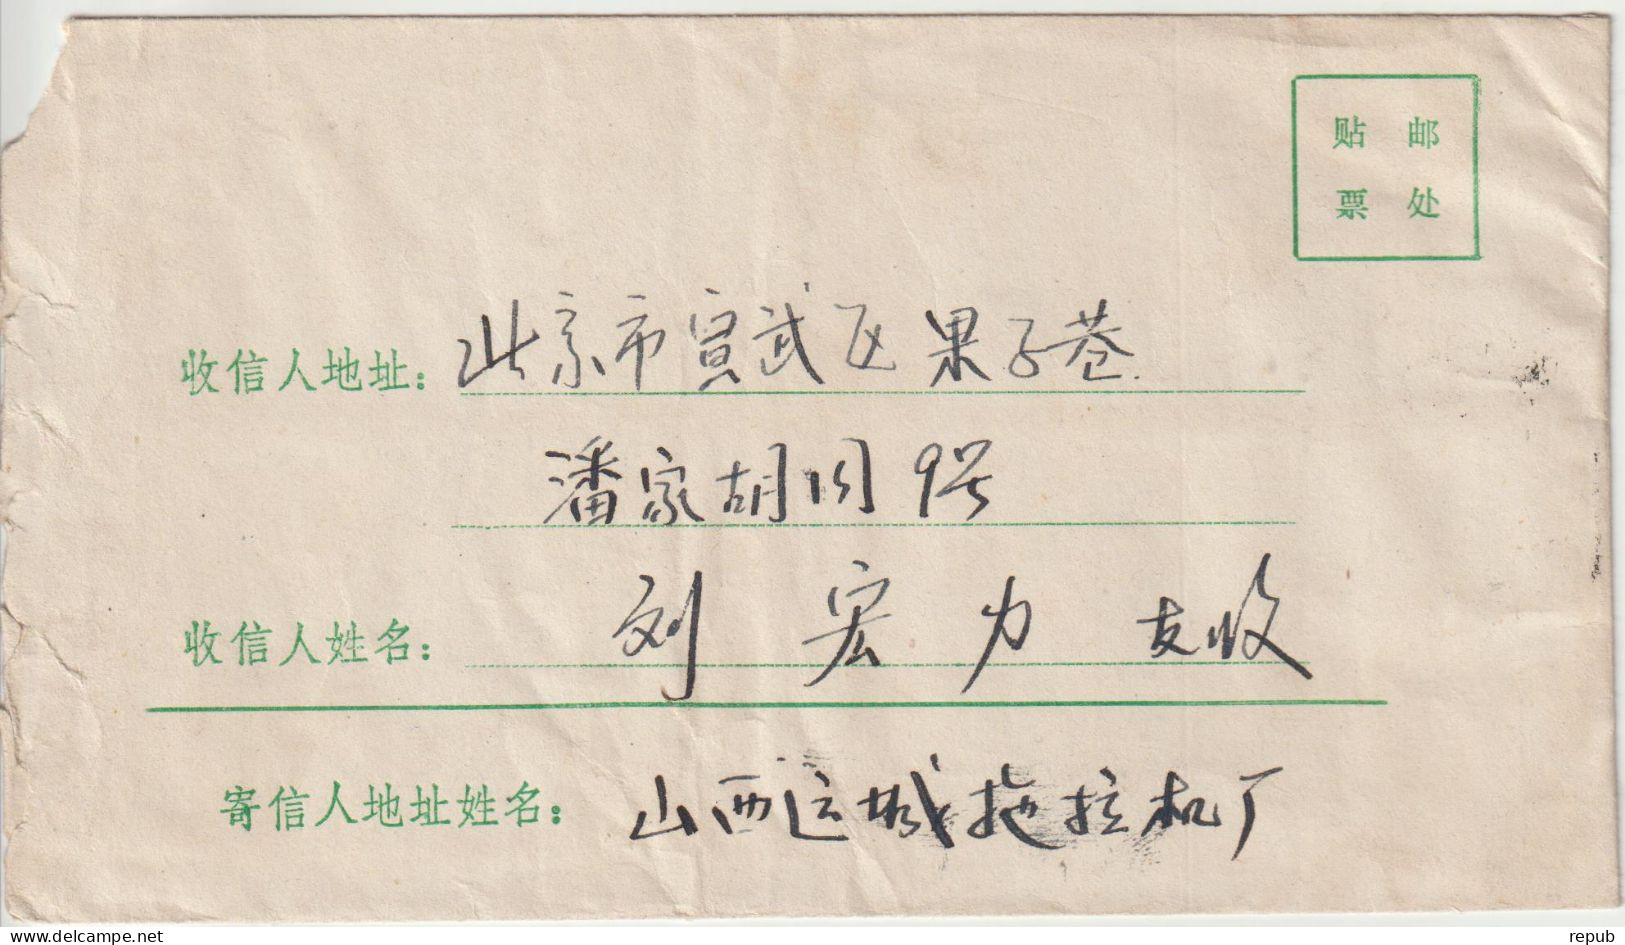 贴 邮
票 处
收信人地址：北京市宣武区果子巷
潘家胡同9号
收信人姓名：刘宏力 友收
寄信人地址姓名：山西运城拖拉机厂
www.delcampe.net
repub